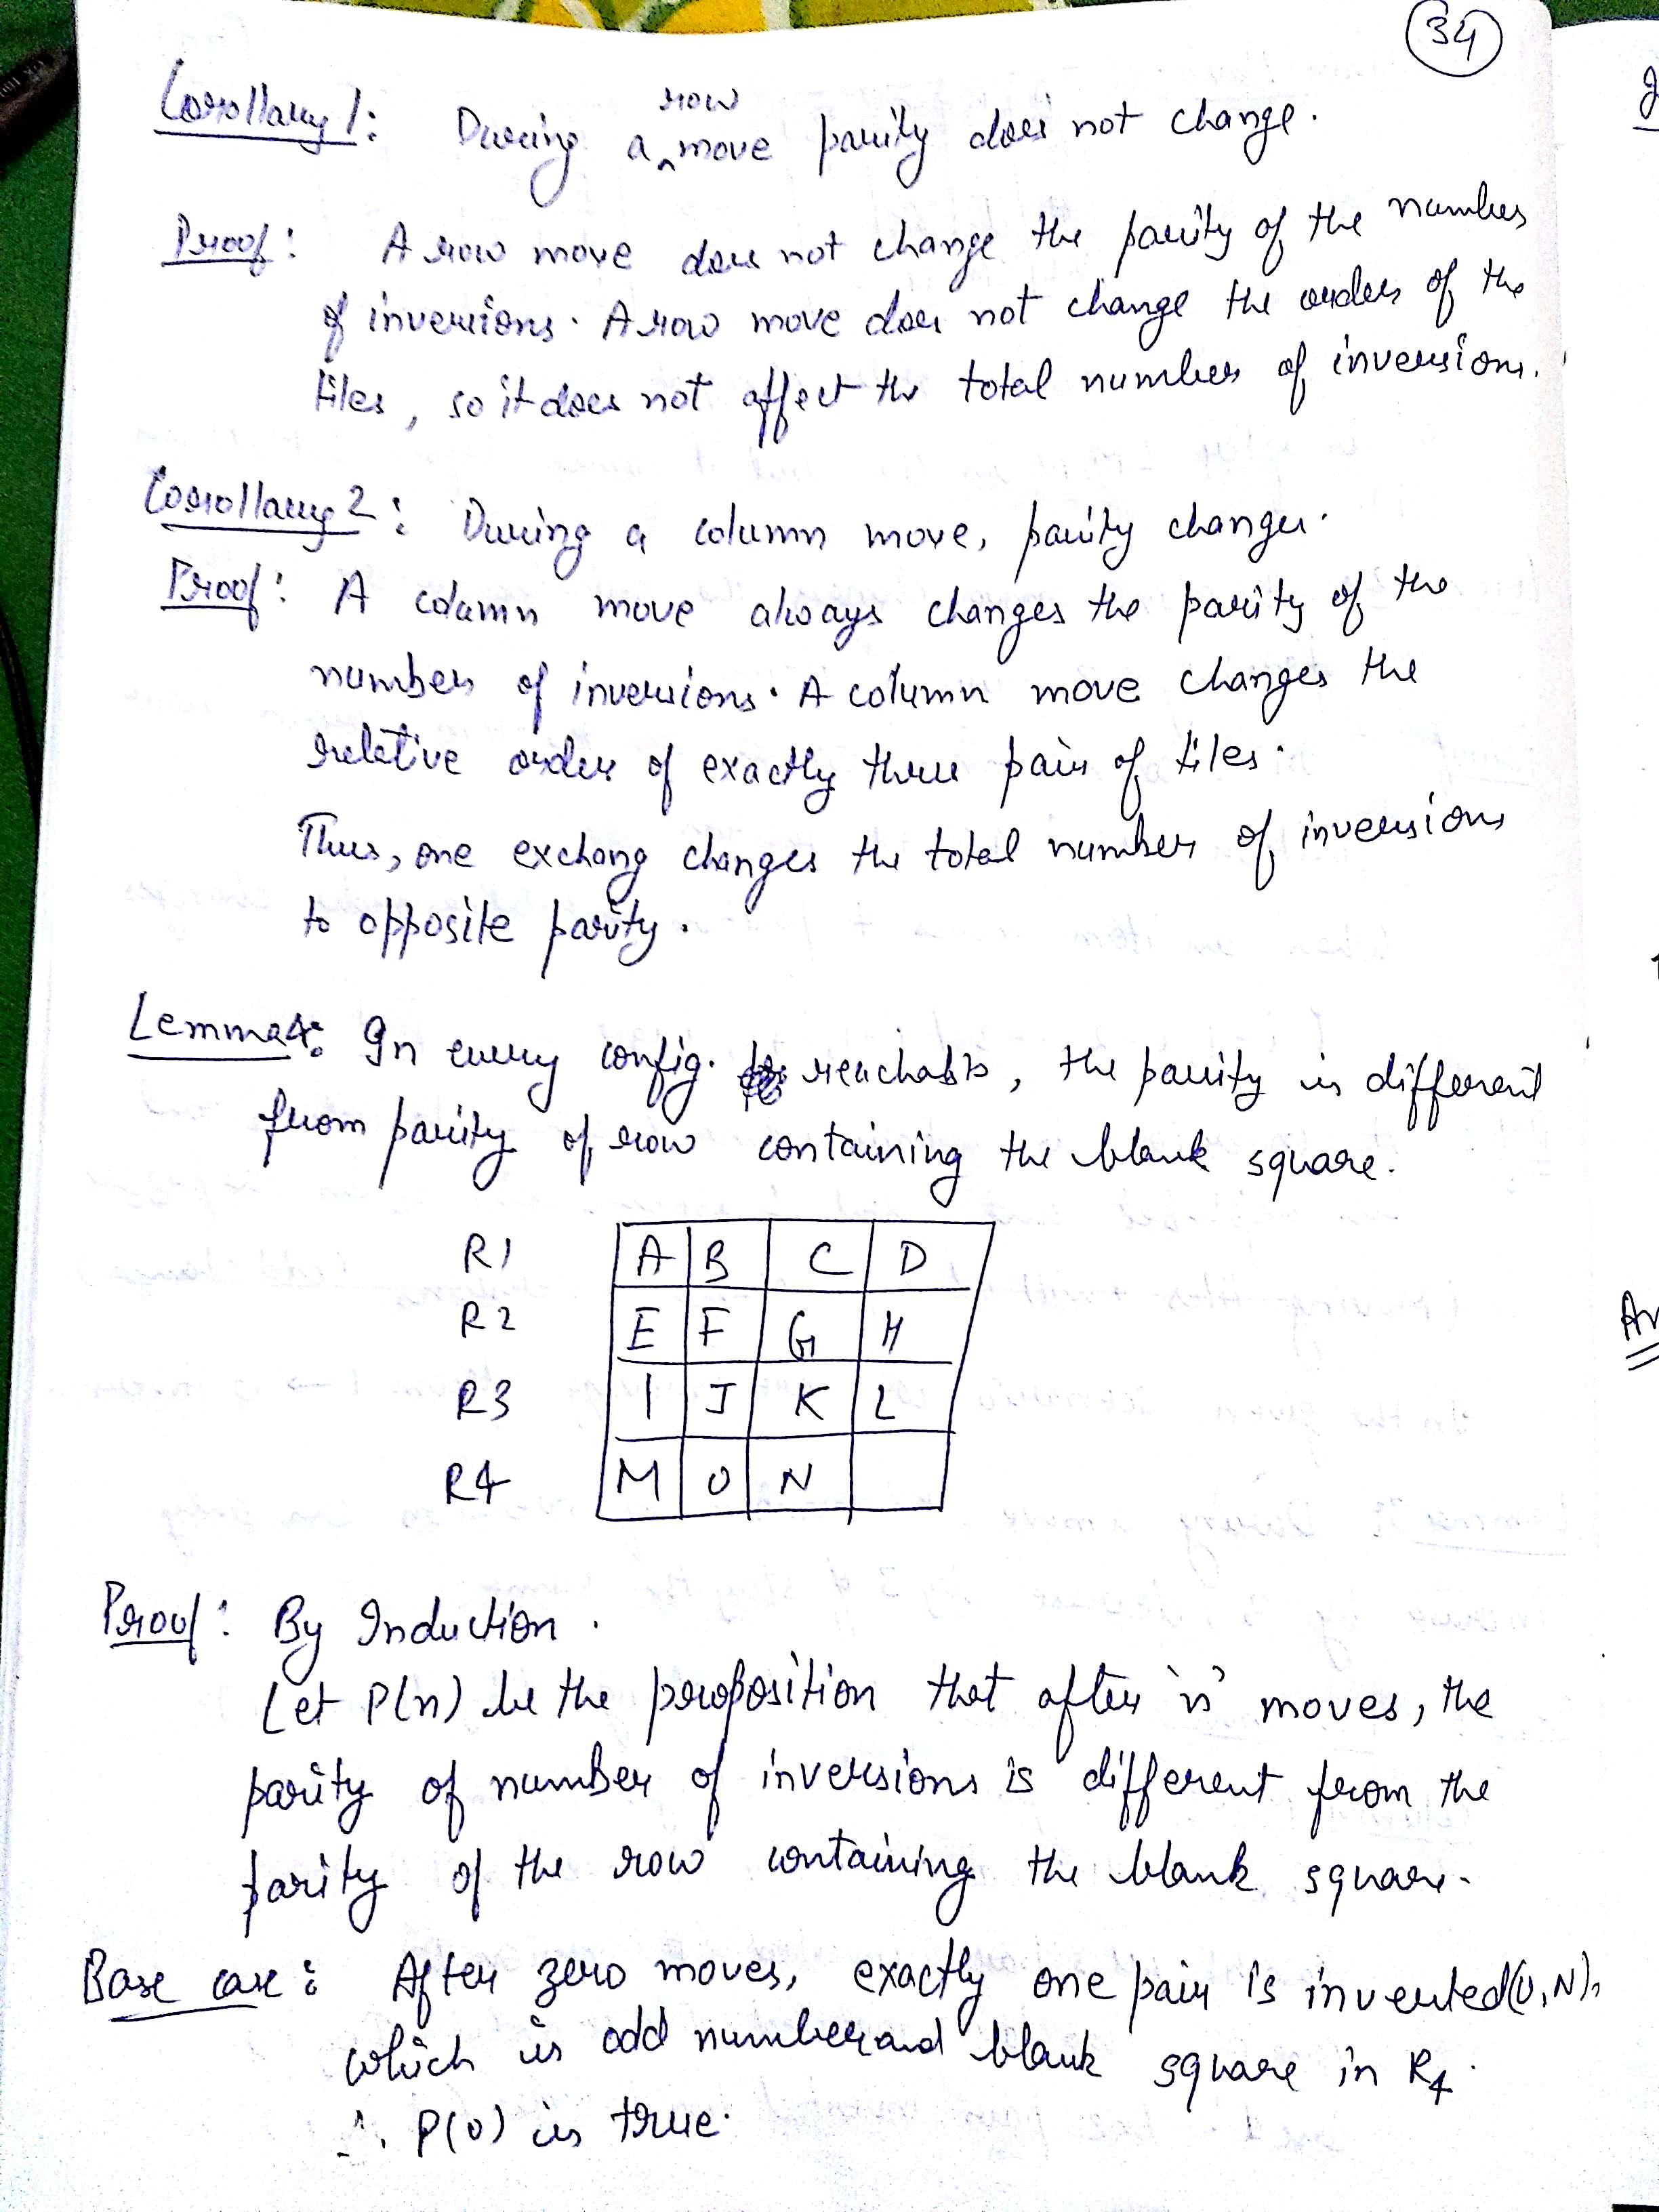 34
Corollary 1: During a row move parity does not change.
Proof: A row move does not change the parity of the number
of inversions. A row move does not change the order of the
tiles, so it does not affect the total number of inversions.
Corollary 2: During a column move, parity changes.
Proof: A column move always changes the parity of the
number of inversions. A column move changes the
relative order of exactly three pairs of tiles.
Thus, one exchang changes the total number of inversions
to opposite parity.
Lemma4: In every config. reachable, the parity is different
from parity of row containing the blank square.
R1 A B C D
R2 E F G H
R3 I J K L
R4 M O N
Proof: By Induction.
Let P(n) be the proposition that after 'n' moves, the
parity of number of inversions is different from the
parity of the row containing the blank square.
Base case: After zero moves, exactly one pair is inverted(O,N),
which is odd number and blank square in R4.
∴ P(0) is true.